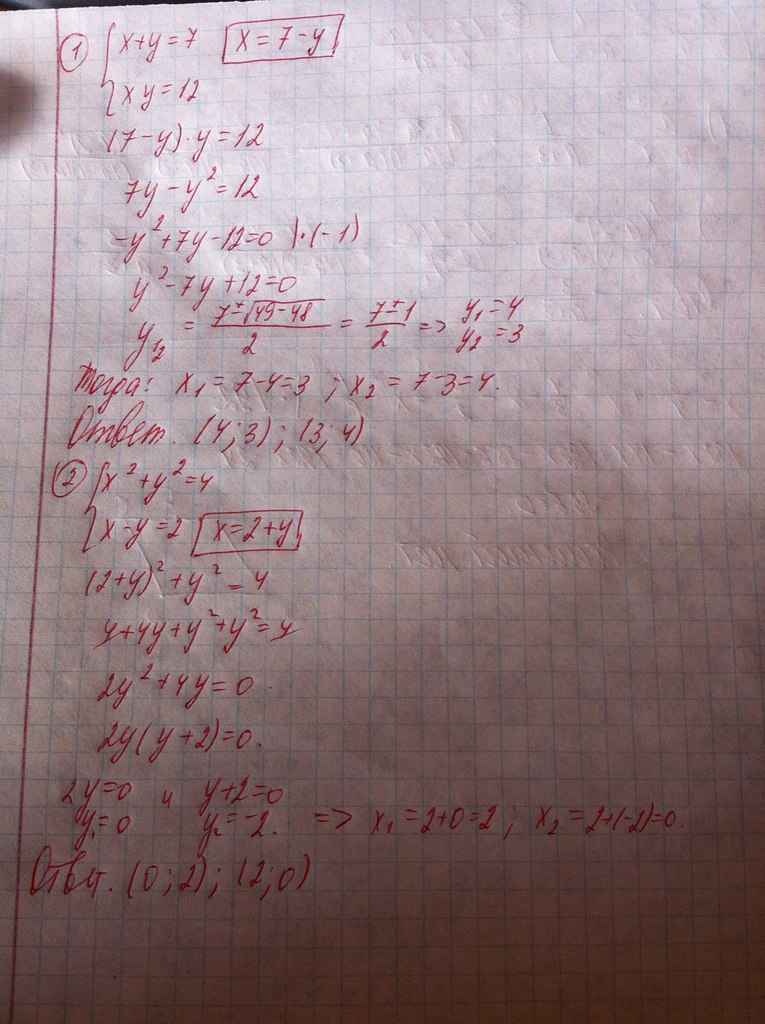 ① { x+y=7 x=7-y
xy=12
(7-y)·y=12
7y-y²=12
-y²+7y-12=0 |·(-1)
y²-7y+12=0
y₁₂ = (7±√49-48)/2 = (7±1)/2 => y₁=4 y₂=3
Тогда: x₁=7-4=3 ; x₂=7-3=4.
Ответ. (4;3) ; (3;4)
② { x²+y²=4
x-y=2 x=2+y
(2+y)²+y²=4
4+4y+y²+y²=4
2y²+4y=0.
2y(y+2)=0.
2y=0 и y+2=0
y₁=0 y₂=-2. => x₁=2+0=2 ; x₂=2+(-2)=0.
Ответ. (0;2) ; (2;0)